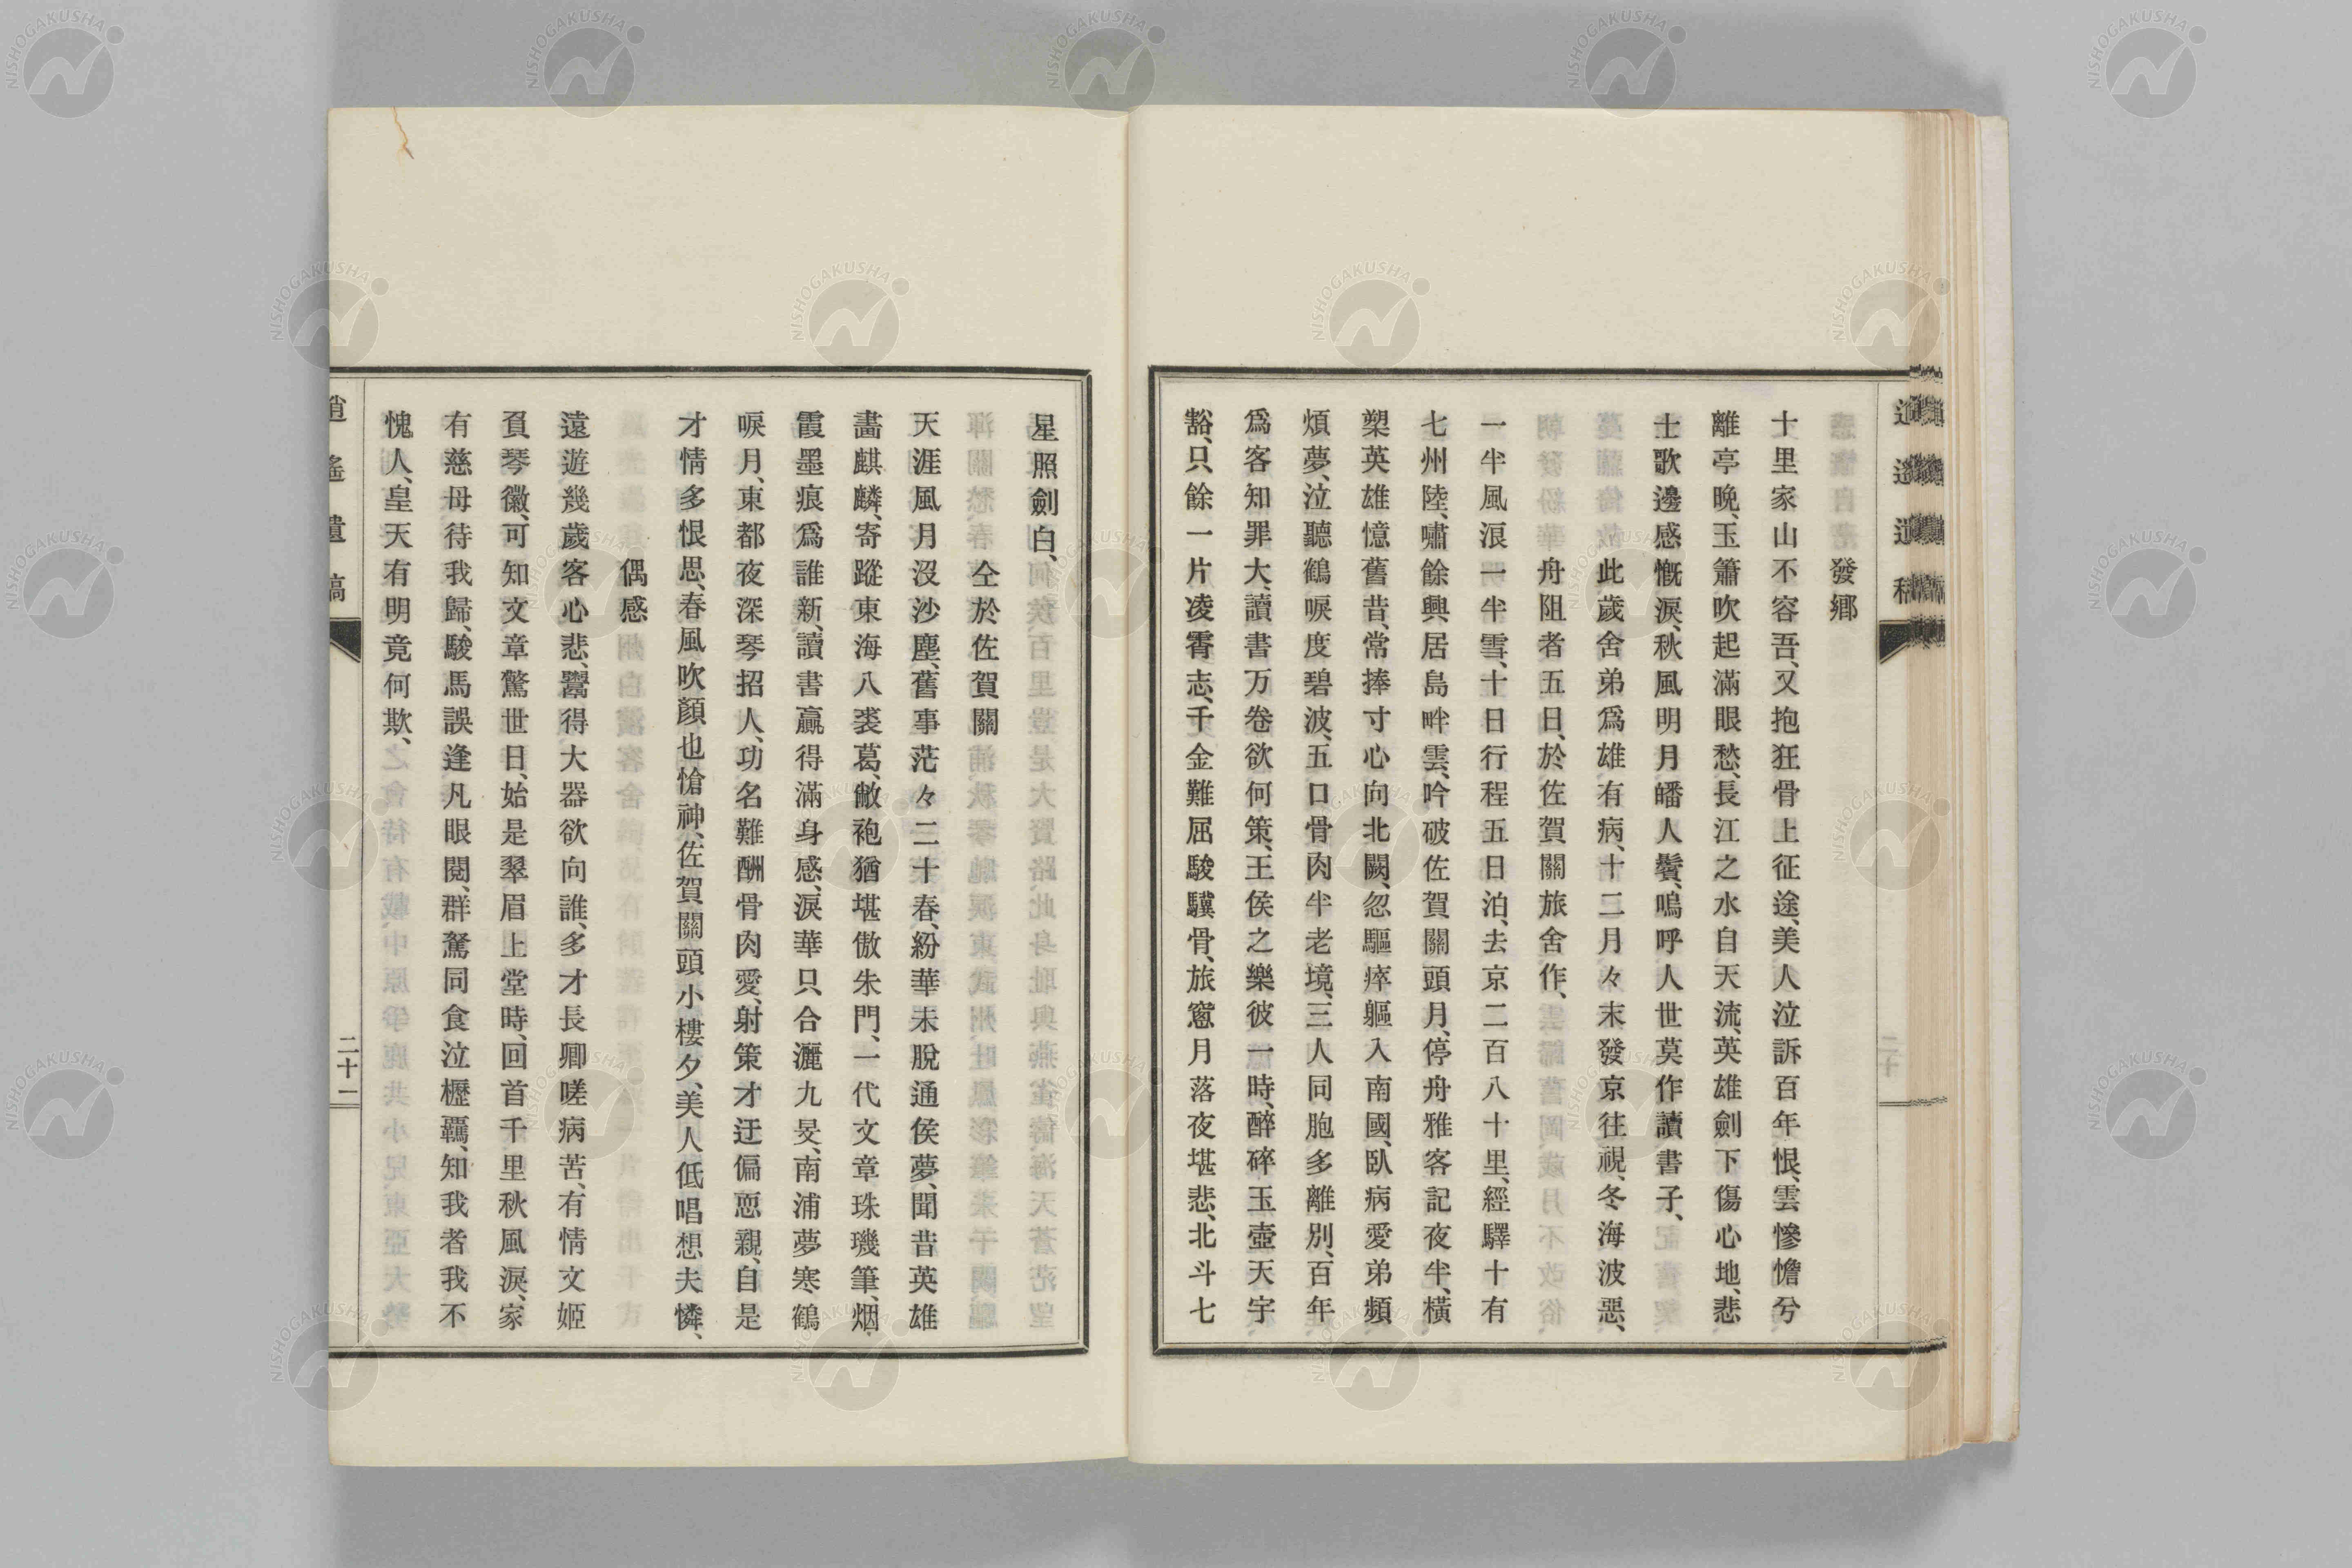 發鄕
十里家山不容吾、又抱狂骨上征途、美人泣訴百年恨、雲慘憺兮
離亭晚、玉簫吹起滿眼愁、長江之水自天流、英雄劍下傷心地、悲
士歌邊感慨淚、秋風明月皤人鬢、嗚呼人世莫作讀書子、
此歲舍弟爲雄有病、十二月々末發京往視、冬海波惡、
舟阻者五日、於佐賀關旅舍作、
一半風浪一半雪、十日行程五日泊、去京二百八十里、經驛十有
七州陸、嘯餘興居島畔雲、吟破佐賀關頭月、停舟雅客記夜半、橫
槊英雄憶舊昔、常捧寸心向北闕、忽驅瘁軀入南國、臥病愛弟頻
煩夢、泣聽鶴唳度碧波、五口骨肉半老境、三人同胞多離別、百年
爲客知罪大、讀書万卷欲何策、王侯之樂彼一時、醉碎玉壺天宇
豁、只餘一片凌霄志、千金難屈駿驥骨、旅窻月落夜堪悲、北斗七
星照劍白、
仝於佐賀關
天涯風月沒沙塵、舊事茫々二十春、紛華未脫通侯夢、聞昔英雄
畵麒麟、寄蹤東海八裘葛、敝袍猶堪傲朱門、一代文章珠璣筆、烟
霞墨痕爲誰新、讀書贏得滿身感、淚華只合灑九旻、南浦夢寒鶴
唳月、東都夜深琴招人、功名難酬骨肉愛、射策才迂偏恧親、自是
才情多恨思、春風吹顏也愴神、佐賀關頭小樓夕、美人低唱想夫憐、
偶感
遠遊幾歲客心悲、鬻得大器欲向誰、多才長卿嗟病苦、有情文姬
負琴徽、可知文章驚世日、始是翠眉上堂時、回首千里秋風淚、家
有慈母待我歸、駿馬誤逢凡眼閱、群駑同食泣櫪羈、知我者我不
愧人、皇天有明竟何欺、
逍遙遺稿
二十二
NISHOGAKUSHA